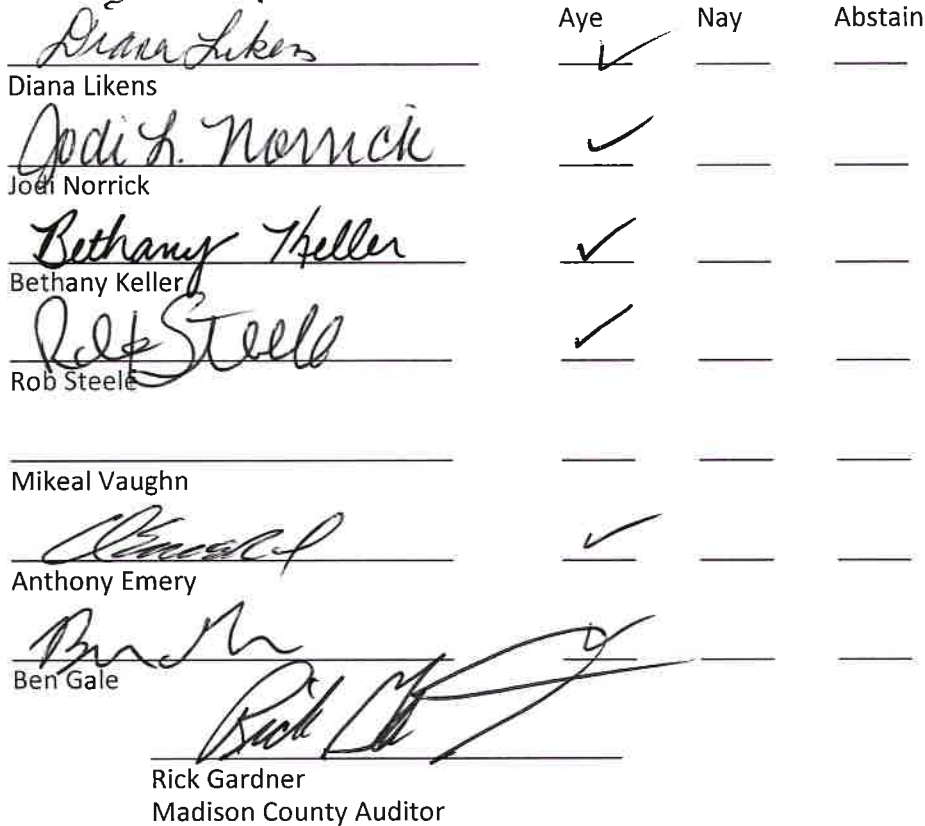 Aye Nay Abstain
Diana Likens ✓
Diana Likens
Jodi L. Norrick ✓
Jodi Norrick
Bethany Keller ✓
Bethany Keller
Rob Steele ✓
Rob Steele
Mikeal Vaughn
✓
Anthony Emery
✓
Ben Gale
Rick
Rick Gardner
Madison County Auditor